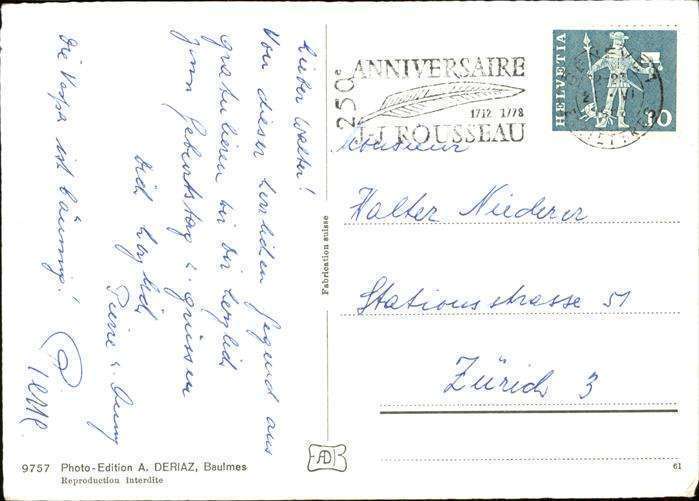 Lieber Walter!
Von dieser herrlichen Gegend aus
gratulieren wir dir herzlich
zum Geburtstag & grüssen
dich herzlich
Pierre &
Die Vespa ist bäumig!
HELVETIA
10
250e ANNIVERSAIRE
1712 1778
J-J ROUSSEAU
Monsieur
Walter Niederer
Stationsstrasse 51
Zürich 3
Fabrication suisse
9757 Photo-Edition A. DERIAZ, Baulmes
Reproduction interdite
AD
61